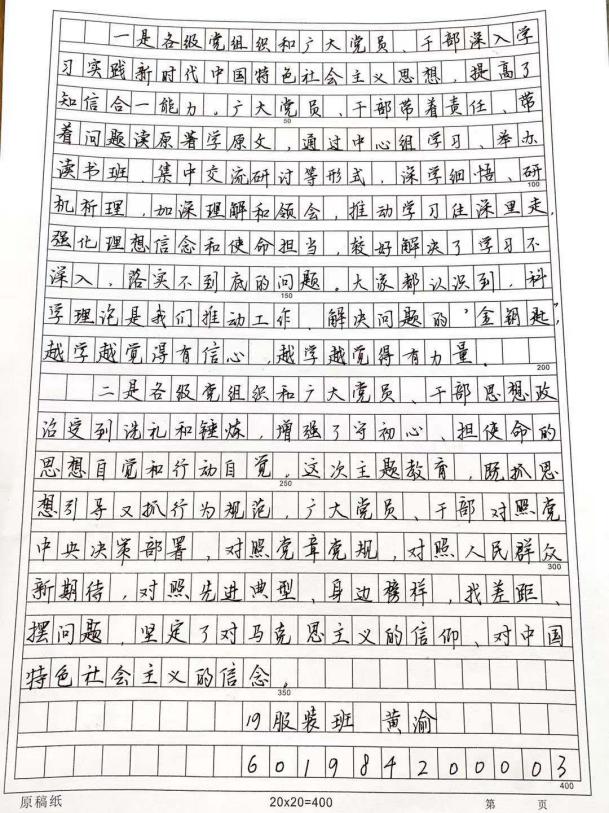 一是各级党组织和广大党员、干部深入学
习实践新时代中国特色社会主义思想，提高了
知信合一能力。广大党员、干部带着责任、带
50
着问题读原著学原文，通过中心组学习、举办
读书班、集中交流研讨等形式，深学细悟、研
100
机析理，加深理解和领会，推动学习往深里走，
强化理想信念和使命担当，较好解决了学习不
深入，落实不到底的问题。大家都认识到，科
150
学理论是我们推动工作、解决问题的“金钥匙”，
越学越觉得有信心，越学越觉得有力量。
200
二是各级党组织和广大党员、干部思想政
治受到洗礼和锤炼，增强了守初心、担使命的
思想自觉和行动自觉。这次主题教育，既抓思
250
想引导又抓行为规范，广大党员、干部对照党
中央决策部署，对照党章党规，对照人民群众
300
新期待，对照先进典型、身边榜样，找差距、
摆问题，坚定了对马克思主义的信仰、对中国
特色社会主义的信念。
350
19服装班 黄渝
601984200003
400
原稿纸 20x20=400 第 页